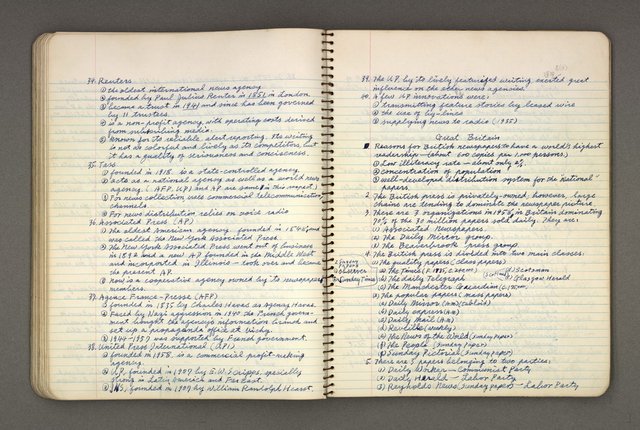 34. Reuters
① the oldest international news agency
② founded by Paul Julius Reuter in 1851 in London
③ became a trust in 1941 and since has been governed
by 11 trustees.
④ is a non-profit agency with operating costs derived
from subscribing media.
⑤ known for its reliable, alert reporting. Its writing
is not as colorful and lively as its competitor, but
it has a quality of seriousness and conciseness.
35. Tass
① founded in 1918. is a state-controlled agency
② acts as a national agency as well as a world news
agency. (AFP, UPI and AP are same in this respect.)
③ For news collection uses commercial telecommunication
channels
④ For news distribution relies on voice radio
36. Associated Press (AP)
① The oldest American agency, founded in 1848 and
was called the New York Associated Press.
② The New York Associated Press went out of business
in 1892 and a new AP founded in the Middle West
and incorporated in Illinois - took over and became
the present AP.
③ Now is a cooperative agency owned by its newspaper
members.
37. Agence France-Presse (AFP)
① founded in 1835 by Charles Havas as Agency Havas.
② Faced by Nazi aggression in 1940 the French govern-
ment bought the agency's information branch and
set up a propaganda office at Vichy.
③ 1944-1957 was supported by French government.
38. United Press International (UPI)
① founded in 1958. is a commercial profit-making
agency.
② UP, founded in 1907 by E.W. Scripps, specially
strong in Latin America and Far East.
③ INS, founded in 1909 by William Randolph Hearst.
39. The UP by its lively featurized writing exerted great
influence on the other news agencies.
40. A few UP innovations were:
① transmitting feature stories by leased wire
② the use of by-lines
③ supplying news to radio (1935)
Great Britain
1. Reasons for British newspapers to have a world's highest
readership - (about 600 copies per 1,000 persons.)
① Low illiteracy rate - about only 2%
② concentration of population
③ well-developed distribution system for the "national"
papers.
2. The British press is privately-owned; however, large
chains are tending to dominate the newspaper picture.
3. There are 3 organizations in 1958 in Britain dominating
70% of the 30 million papers sold daily. They are:
(1) Associated Newspapers
(2) The Daily Mirror group
(3) The Beaverbrook press group.
4. The British press is divided into two main classes:
(1) The quality papers (class papers)
(a) The Times
(b) The daily Telegraph
(c) The Manchester Guardian
Scotsman
Glasgow Herald
Observer
Sunday Times
(2) The popular papers (mass papers)
(a) Daily Mirror (AM) (tabloid)
(b) Daily express (AM)
(c) Daily Mail (AM)
(d) Reveille (weekly)
(e) The News of the World (Sunday paper)
(f) The People (Sunday paper)
(g) Sunday Pictorial (Sunday paper)
5. There are 3 papers belonging to two parties:
(a) Daily Worker - Communist Party
(b) Daily Herald - Labor Party
(c) Reynolds News (Sunday paper) - Labor Party